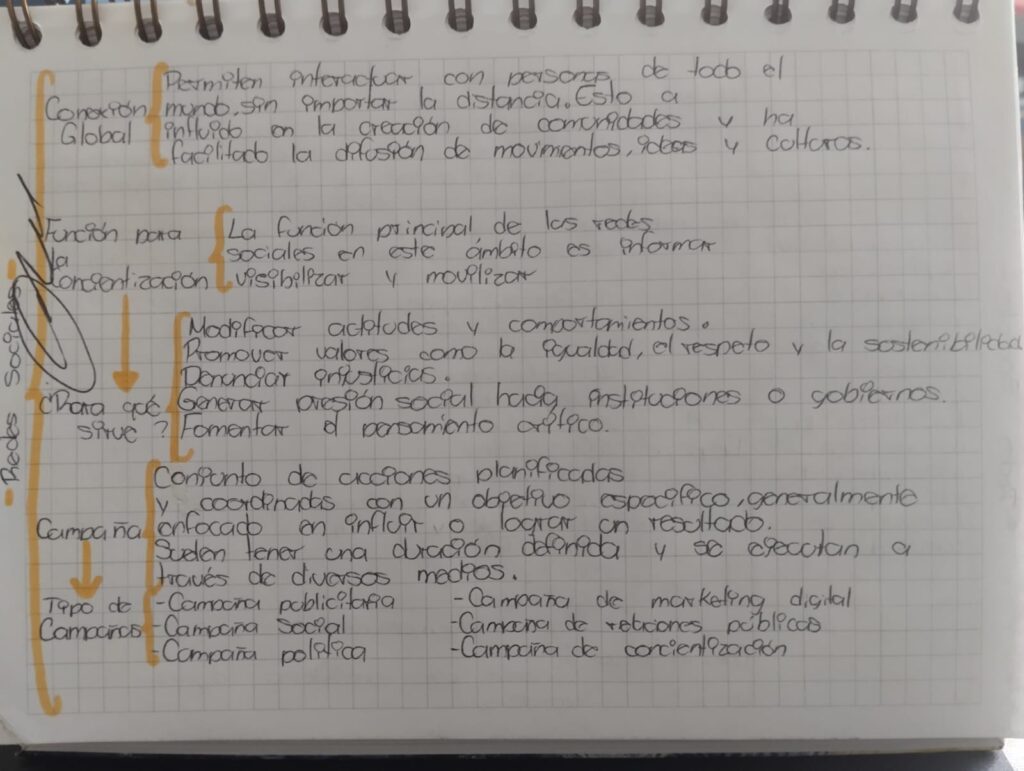 - Redes Sociales -
Conexión Global
Permiten interactuar con persona de todo el
mundo, sin importar la distancia. Esto a
influido en la creación de comunidades y ha
facilitado la difusión de movimentos, ideas y culturas.
Función para
la
Concientización
La función principal de las redes
sociales en este ámbito es informar
visibilizar y movilizar
¿Para qué
sirve?
Modificar actitudes y comportamientos.
Promover valores como la igualdad, el respeto y la sostenibilidad
Denunciar injusticias.
Generar presión social hacia instituciones o gobiernos.
Fomentar el pensamiento crítico.
Campaña
Conjunto de acciones planificadas
y coordinadas con un objetivo específico, generalmente
enfocado en influir o lograr un resultado.
Suelen tener una duración definida y se ejecutan a
través de diversos medios.
Tipo de
Campañas
-Campaña publicitaria
-Campaña social
-Campaña política
-Campaña de marketing digital
-Campaña de relaciones públicas
-Campaña de concientización